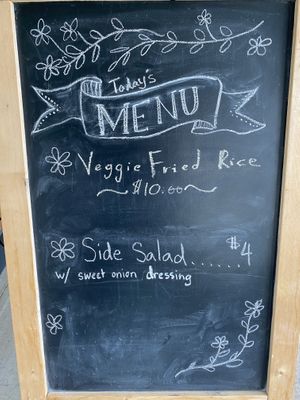 Today's
MENU
Veggie Fried Rice
~ $10.00 ~
Side Salad...... $4
w/ sweet onion dressing